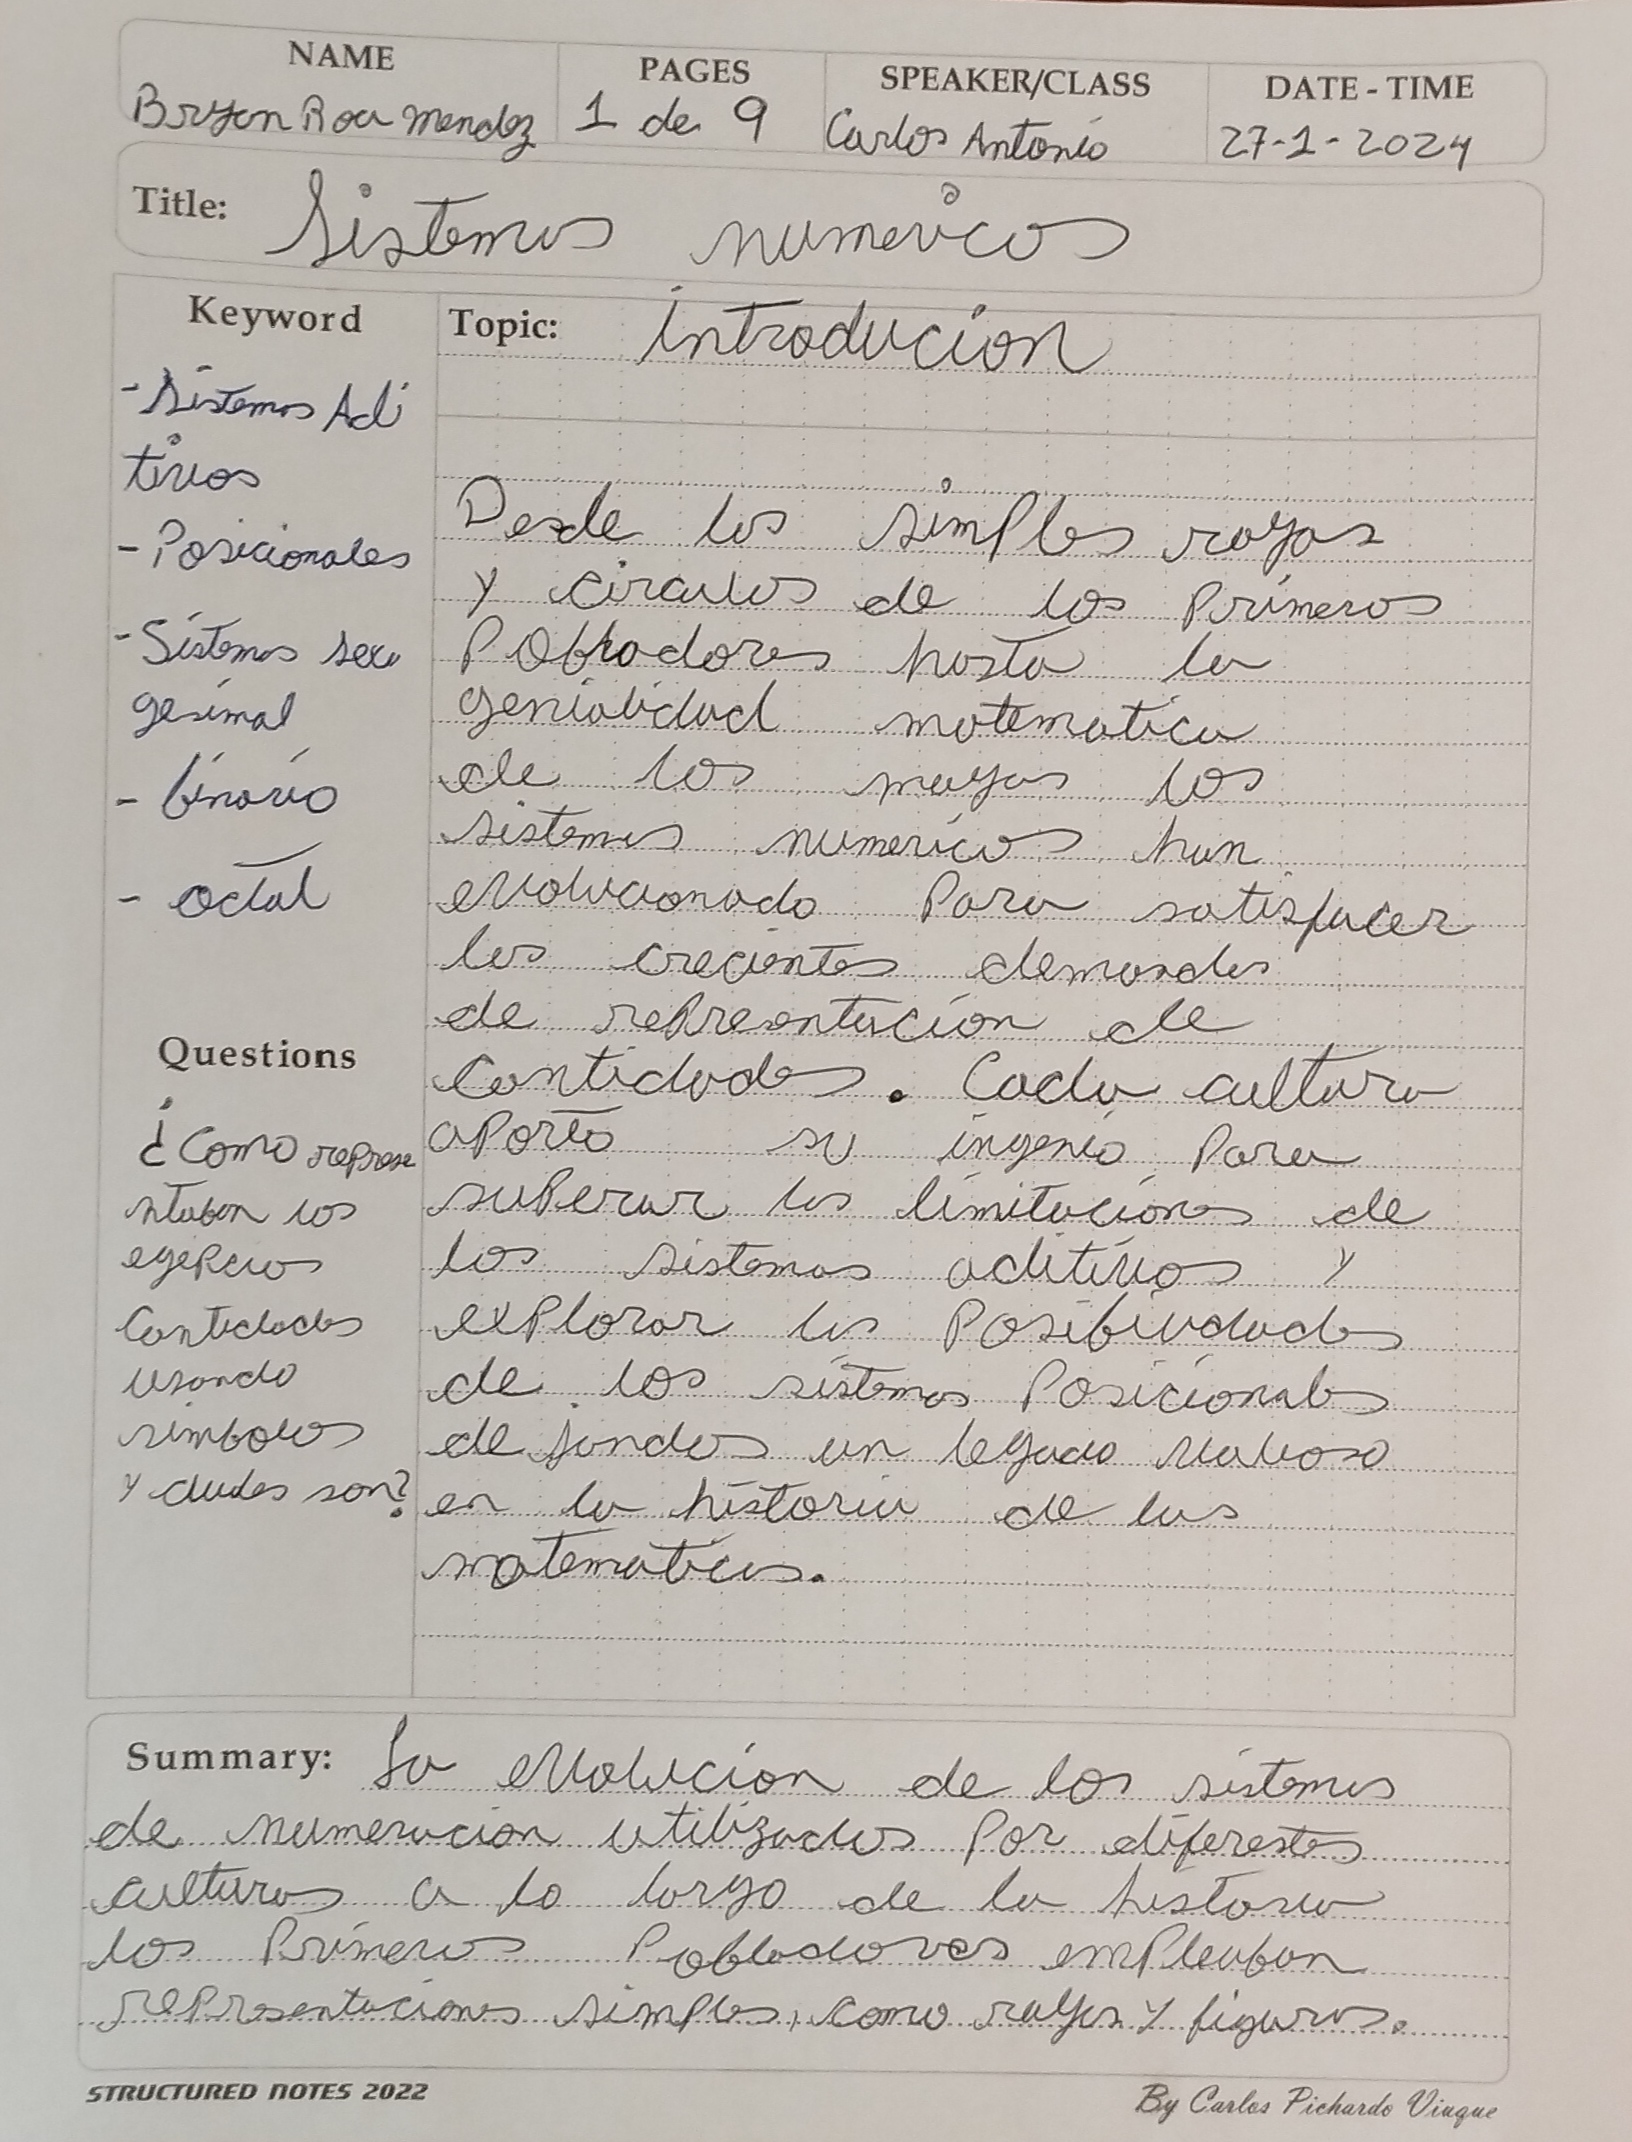 NAME
Bryan Roa Mendez
PAGES
1 de 9
SPEAKER/CLASS
Carlos Antonio
DATE - TIME
27-1-2024
Title: Sistemas numericos
Keyword
- Sistemas Adi
tivos
- Posicionales
- Sistemas sexa
gesimal
- binario
- octal
Questions
¿Como represe
ntaban los
egepcios
Cantidades
usando
simbolos
y cuales son?
Topic: introducion
Desde las simples rayas
y circulos de los primeros
Pobladores hasta la
genialidad matematica
de los mayas los
sistemas numericos han
evolucionado Para satisfacer
las crecientes demandas
de representacion de
Cantidades. Cada cultura
aporto su ingenio Para
superar las limitaciones de
los sistemas aditivos y
explorar las Posibilidades
de los sistemas Posicionales
dejandos un legado valioso
en la historia de las
matematicas.
Summary: La evolucion de los sistemas
de numeracion utilizados Por diferestes
culturas a lo largo de la historia
los Primeros Pobladores empleaban
representaciones simples, como rayas y figuras.
STRUCTURED NOTES 2022
By Carlos Pichardo Viuque